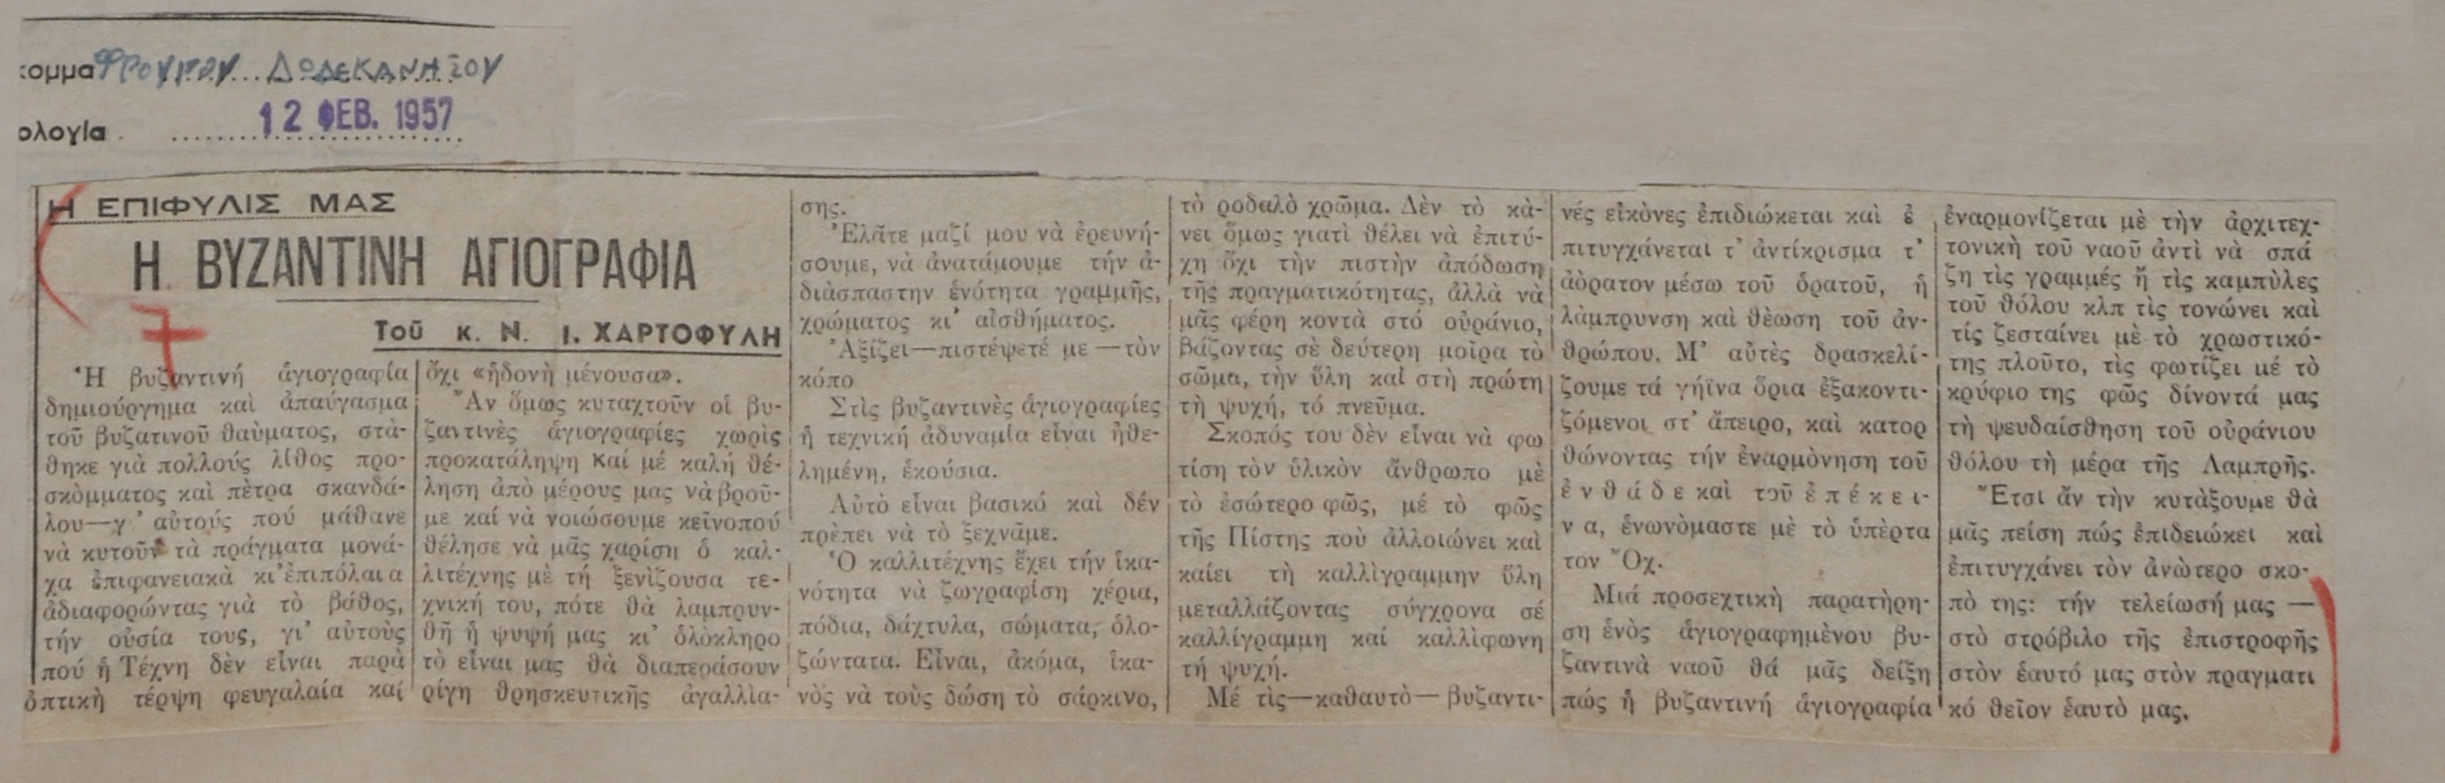 κομμα ΦΡΟΥΡΟΥ ΔΩΔΕΚΑΝΗΣΟΥ
ολογία 12 ΦΕΒ. 1957
Η ΕΠΙΦΥΛΙΣ ΜΑΣ
Η ΒΥΖΑΝΤΙΝΗ ΑΓΙΟΓΡΑΦΙΑ
7
Τοῦ κ. Ν. Ι. ΧΑΡΤΟΦΥΛΗ
Ἡ βυζαντινή ἁγιογραφία
δημιούργημα καὶ ἀπαύγασμα
τοῦ βυζατινοῦ θαὺματος, στὰ-
θηκε γιὰ πολλούς λίθος προ-
σκὸμματος καὶ πὲτρα σκανδά-
λου—γ' αὐτούς πού μάθανε
νὰ κυτοῦν τὰ πράγματα μονά-
χα ἐπιφανειακὰ κι' ἐπιπόλαια
ἀδιαφορώντας γιὰ τὸ βάθος,
τήν οὐσία τους, γι' αὐτοὺς
πού ἡ Τέχνη δὲν εἶναι παρὰ
ὀπτικὴ τέρψη φευγαλαία καί
ὄχι «ἡδονὴ μένουσα».
Ἂν ὅμως κυταχτοῦν οἱ βυ-
ζαντινὲς ἁγιογραφίες χωρὶς
προκατάληψη καί μέ καλή θέ-
ληση ἀπὸ μέρους μας νὰ βροῦ-
με καί νὰ νοιώσουμε κεῖνοπού
θέλησε νὰ μᾶς χαρίση ὁ καλ-
λιτέχνης μὲ τή ξενὶζουσα τε-
χνική του, πότε θὰ λαμπρυν-
θῆ ἡ ψυψή μας κι' ὁλὸκληρο
τὸ εἶναι μας θὰ διαπεράσουν
ρίγη θρησκευτικῆς ἀγαλλία-
σης.
Ἐλᾶτε μαζί μου νὰ ἐρευνή-
σουμε, νὰ ἀνατάμουμε τήν ἀ-
διὰσπαστην ἑνότητα γραμμῆς,
χρώματος κι' αἰσθήματος.
Ἀξίζει—πιστέψετέ με—τὸν
κόπο
Στὶς βυζαντινὲς ἁγιογραφίες
ἡ τεχνική ἀδυναμία εἶναι ἠθε-
λημένη, ἑκούσια.
Αὐτὸ εἶναι βασικό καὶ δέν
πρὲπει νὰ τὸ ξεχνᾶμε.
Ὁ καλλιτέχνης ἔχει τήν ἱκα-
νότητα νὰ ζωγραφίση χέρια,
πόδια, δάχτυλα, σώματα, ὁλο-
ζώντατα. Εἶναι, ἀκόμα, ἱκα-
νὸς νὰ τοὺς δώση τὸ σάρκινο,
τὸ ροδαλὸ χρῶμα. Δὲν τὸ κὰ-
νει ὅμως γιατὶ θέλει νὰ ἐπιτύ-
χη ὄχι τὴν πιστὴν ἀπόδωση
τῆς πραγματικότητας, ἀλλὰ νὰ
μᾶς φέρη κοντὰ στό οὐράνιο,
βάζοντας σὲ δεύτερη μοῖρα τὸ
σῶμα, τὴν ὕλη καί στὴ πρώτη
τὴ ψυχή, τό πνεῦμα.
Σκοπός του δὲν εἶναι νὰ φω
τίση τὸν ὑλικὸν ἄνθρωπο μὲ
τὸ ἐσώτερο φῶς, μέ τὸ φῶς
τῆς Πίστης ποὺ ἀλλοιώνει καὶ
καίει τὴ καλλὶγραμμην ὕλη
μεταλλάζοντας σύγχρονα σέ
καλλίγραμμη καί καλλὶφωνη
τή ψυχή.
Μέ τὶς—καθαυτὸ—βυζαντι-
νές εἰκὸνες ἐπιδιώκεται καὶ ἐ
πιτυγχάνεται τ' ἀντίκρισμα τ'
ἀὸρατον μέσω τοῦ ὁρατοῦ, ἡ
λὰμπρυνση καὶ θὲωση τοῦ ἀν-
θρώπου. Μ' αὐτὲς δρασκελί-
ζουμε τά γήϊνα ὅρια ἐξακοντι-
ζόμενοι στ' ἄπειρο, καὶ κατορ
θώνοντας τήν ἐναρμὸνηση τοῦ
ἐνθάδε καὶ τοῦ ἐπέκει-
να, ἑνωνὸμαστε μὲ τὸ ὑπὲρτα
τον Ὄχ.
Μιά προσεχτικὴ παρατὴρη-
ση ἑνὸς ἁγιογραφημένου βυ-
ζαντινὰ ναοῦ θά μᾶς δείξη
πώς ἡ βυζαντινή ἁγιογραφία
ἐναρμονίζεται μὲ τὴν ἀρχιτεχ-
τονικὴ τοῦ ναοῦ ἀντὶ νὰ σπά
ζη τὶς γραμμές ἤ τὶς καμπὺλες
τοῦ θόλου κλπ τὶς τονώνει καὶ
τίς ζεσταίνει μὲ τὸ χρωστικό-
της πλοῦτο, τὶς φωτίζει μέ τὸ
κρύφιο της φῶς δίνοντά μας
τὴ ψευδαίσθηση τοῦ οὐράνιου
θόλου τὴ μέρα τῆς Λαμπρῆς.
Ἔτσι ἄν τὴν κυτὰξουμε θὰ
μᾶς πείση πώς ἐπιδειώκει καὶ
ἐπιτυγχάνει τὸν ἀνὼτερο σκο-
πὸ της: τήν τελείωσή μας —
στὸ στρόβιλο τῆς ἐπιστροφῆς
στὸν ἑαυτό μας στὸν πραγματι
κό θεῖον ἑαυτὸ μας.